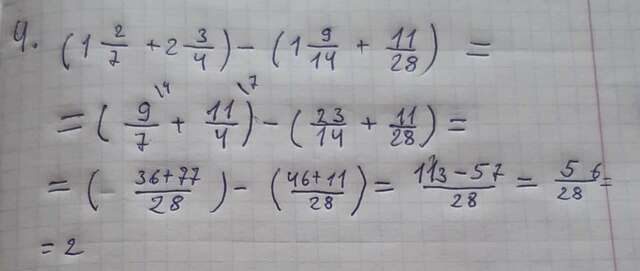 4. (1 2/7 + 2 3/4) - (1 9/14 + 11/28) =
= (9/7 \4 + 11/4 \7) - (23/14 + 11/28) =
= (36+77/28) - (46+11/28) = 113-57/28 = 56/28 =
= 2